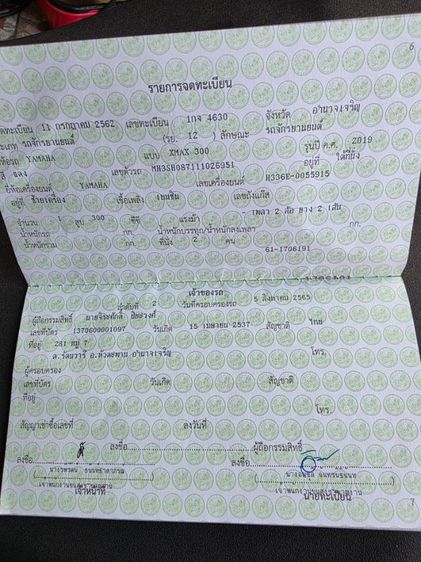 6
รายการจดทะเบียน
วันจดทะเบียน 11 กรกฎาคม 2562 เลขทะเบียน 1กจ 4630 จังหวัด อำนาจเจริญ
ประเภท รถจักรยานยนต์ (รย. 12 ) ลักษณะ รถจักรยานยนต์
ยี่ห้อรถ YAMAHA แบบ XMAX 300 รุ่นปี ค.ศ. 2019
สี แดง เลขตัวรถ อยู่ที่ ใต้ที่นั่ง
ยี่ห้อเครื่องยนต์ YAMAHA เลขเครื่องยนต์ H336E-0055915
อยู่ที่ ซ้ายเครื่อง เชื้อเพลิง เบนซิน เลขถังแก๊ส
จำนวน 1 สูบ 300 ซีซี แรงม้า - เพลา 2 ล้อ ยาง 2 เส้น
น้ำหนักรถ กก. น้ำหนักบรรทุก/น้ำหนักลงเพลา กก.
น้ำหนักรวม กก. ที่นั่ง 2 คน
61-1706191
เจ้าของรถ
ลำดับที่ 2 วันที่ครอบครองรถ 5 สิงหาคม 2565
ผู้ถือกรรมสิทธิ์ นายจิระศักดิ์
เลขที่บัตร 1370600001097 วันเกิด 15 เมษายน 2537 สัญชาติ ไทย
ที่อยู่ 281 หมู่ 7
ต.รัตนวารี อ.หัวตะพาน อำนาจเจริญ โทร.
ผู้ครอบครอง
เลขที่บัตร วันเกิด สัญชาติ
ที่อยู่
โทร.
สัญญาเช่าซื้อเลขที่ ลงวันที่
ลงชื่อ ผู้ถือกรรมสิทธิ์
ลงชื่อ ลงชื่อ
เจ้าหน้าที่ นายทะเบียน
7